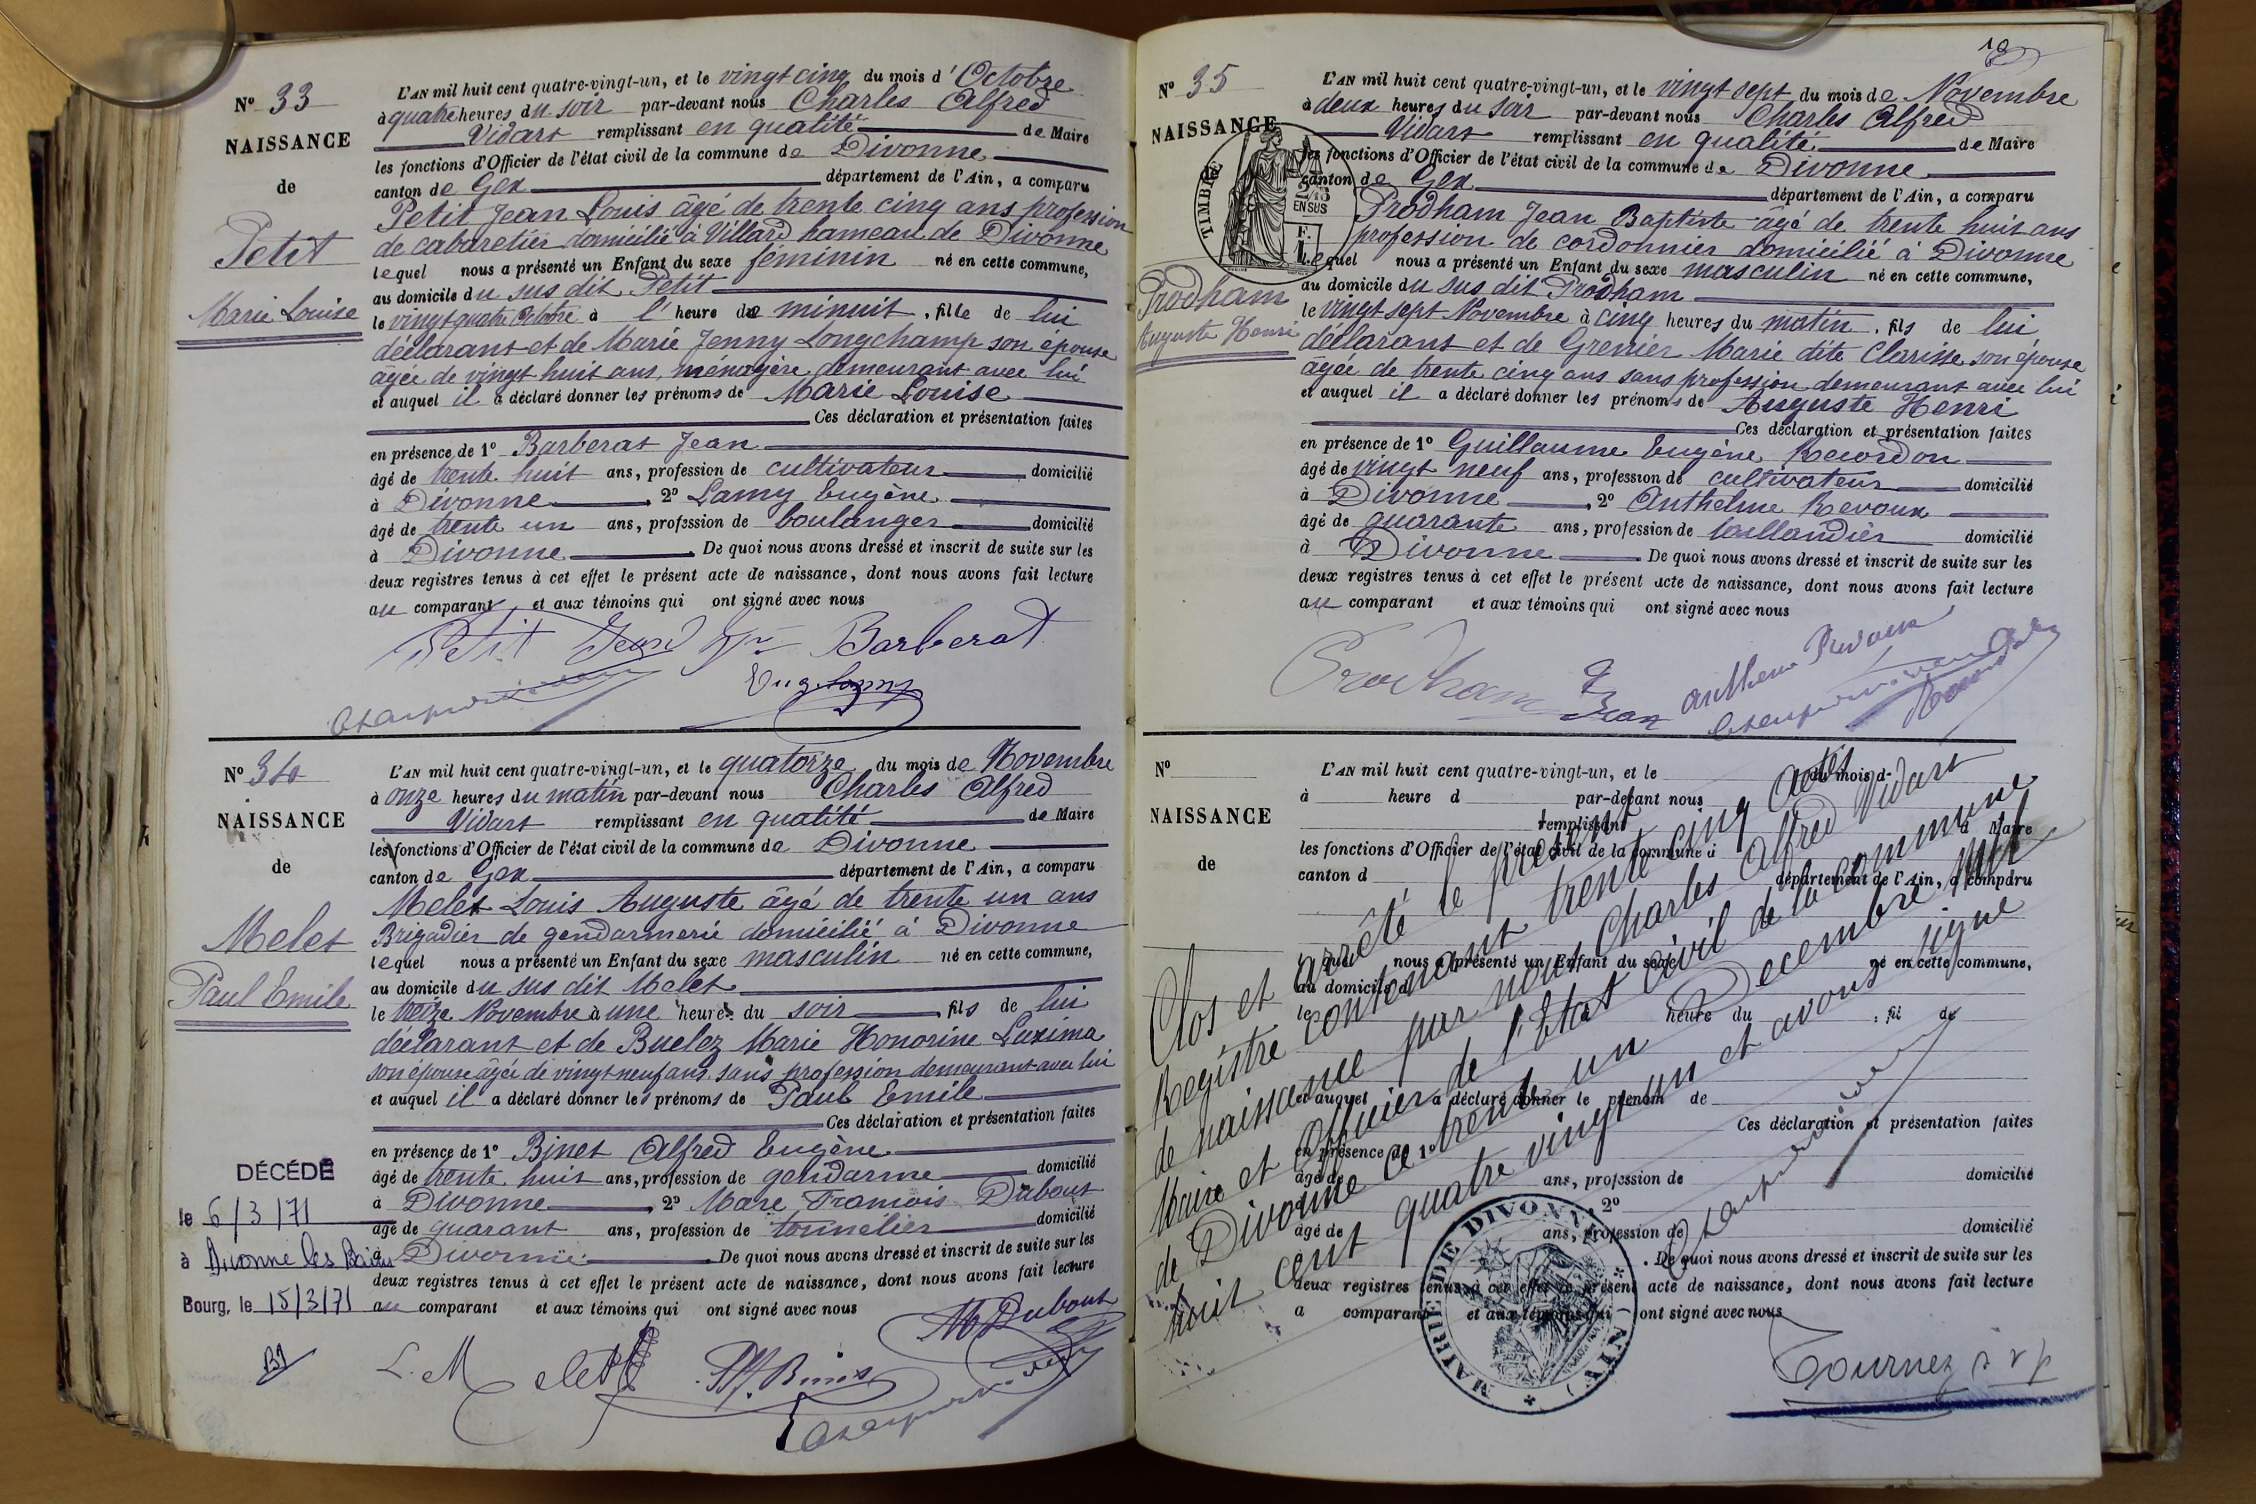 Nº 33
NAISSANCE
de
Petit
Marie Louise
L'AN mil huit cent quatre-vingt-un, et le vingt cinq du mois d'Octobre
à quatre heures du soir par-devant nous Charles Alfred
Vidart remplissant en qualité de Maire
les fonctions d'Officier de l'état civil de la commune de Divonne
canton de Gex département de l'Ain, a comparu
Petit Jean Louis âgé de trente cinq ans profession
de cabaretier domicilié à Villard hameau de Divonne
lequel nous a présenté un Enfant du sexe féminin né en cette commune,
au domicile du sus dit Petit
le vingt quatre Octobre à l'heure de minuit, fille de lui
déclarant et de Marie Jenny Longchamp son épouse
âgée de vingt huit ans, ménagère demeurant avec lui
et auquel il a déclaré donner les prénoms de Marie Louise
Ces déclaration et présentation faites
en présence de 1º Barberat Jean
âgé de trente huit ans, profession de cultivateur domicilié
à Divonne 2º Lamy Eugène
âgé de trente un ans, profession de boulanger domicilié
à Divonne. De quoi nous avons dressé et inscrit de suite sur les
deux registres tenus à cet effet le présent acte de naissance, dont nous avons fait lecture
au comparant et aux témoins qui ont signé avec nous
Petit Jean Barberat
Eug Lamy
Nº 34
NAISSANCE
de
Melet
Paul Emile
L'AN mil huit cent quatre-vingt-un, et le quatorze du mois de Novembre
à onze heures du matin par-devant nous Charles Alfred
Vidart remplissant en qualité de Maire
les fonctions d'Officier de l'état civil de la commune de Divonne
canton de Gex département de l'Ain, a comparu
Melet Louis Auguste âgé de trente un ans
Brigadier de gendarmerie domicilié à Divonne
lequel nous a présenté un Enfant du sexe masculin né en cette commune,
au domicile du sus dit Melet
le treize Novembre à une heure du soir, fils de lui
déclarant et de Buelez Marie Honorine Luxima
son épouse âgée de vingt neuf ans sans profession demeurant avec lui
et auquel il a déclaré donner les prénoms de Paul Emile
Ces déclaration et présentation faites
en présence de 1º Binet Alfred Eugène
âgé de trente huit ans, profession de gendarme domicilié
à Divonne, 2º Marc François Dubout
âgé de quarant ans, profession de tonnelier domicilié
à Divonne. De quoi nous avons dressé et inscrit de suite sur les
deux registres tenus à cet effet le présent acte de naissance, dont nous avons fait lecture
au comparant et aux témoins qui ont signé avec nous
DÉCÉDÉ
le 6/3/71
à Divonne les Bains
Bourg, le 15/3/71
M Dubout
L. Melet Binet
Nº 35
NAISSANCE
TIMBRE
2/10 EN SUS
Prodham
Auguste Henri
L'AN mil huit cent quatre-vingt-un, et le vingt sept du mois de Novembre
à deux heures du soir par-devant nous Charles Alfred
Vidart remplissant en qualité de Maire
les fonctions d'Officier de l'état civil de la commune de Divonne
canton de Gex département de l'Ain, a comparu
Prodham Jean Baptiste âgé de trente huit ans
profession de cordonnier domicilié à Divonne
Lequel nous a présenté un Enfant du sexe masculin né en cette commune,
au domicile du sus dit Prodham
le vingt sept Novembre à cinq heures du matin, fils de lui
déclarant et de Grenier Marie dite Clarisse son épouse
âgée de trente cinq ans sans profession demeurant avec lui
et auquel il a déclaré donner les prénoms de Auguste Henri
Ces déclaration et présentation faites
en présence de 1º Guillaume Eugène Recordon
âgé de vingt neuf ans, profession de cultivateur domicilié
à Divonne, 2º Anthelme Revoux
âgé de quarante ans, profession de taillandier domicilié
à Divonne. De quoi nous avons dressé et inscrit de suite sur les
deux registres tenus à cet effet le présent acte de naissance, dont nous avons fait lecture
au comparant et aux témoins qui ont signé avec nous
Prodham Jean
Nº
NAISSANCE
de
L'AN mil huit cent quatre-vingt-un, et le du mois d
à heure d par-devant nous
remplissant Maire
les fonctions d'Officier de l'état civil de la commune d
canton d département de l'Ain, a comparu
lequel nous a présenté un Enfant du sexe né en cette commune,
au domicile d
le heure du , fil de
et auquel a déclaré donner le prénom de
Ces déclaration et présentation faites
en présence de 1º
âgé de ans, profession de domicilié
2º
âgé de ans, profession de domicilié
. De quoi nous avons dressé et inscrit de suite sur les
deux registres tenus à cet effet le présent acte de naissance, dont nous avons fait lecture
a comparant et aux témoins qui ont signé avec nous
Clos et arrêté le présent
Registre contenant trente cinq actes
de naissance par nous Charles Alfred Vidart
Maire et Officier de l'Etat civil de la commune
de Divonne ce trente un Decembre Mil
huit cent quatre vingt un et avons signé
MAIRIE DE DIVONNE (AIN)
Tournez s v p